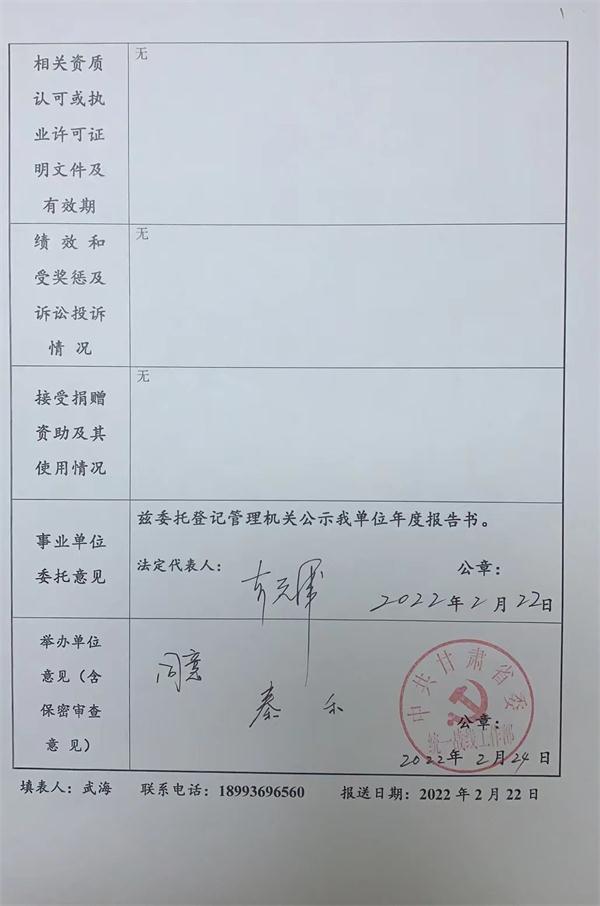 相关资质
认可或执
业许可证
明文件及
有效期
无
绩 效 和
受奖惩及
诉讼投诉
情 况
无
接受捐赠
资助及其
使用情况
无
事业单位
委托意见
兹委托登记管理机关公示我单位年度报告书。
法定代表人：
公章：
2022年2月22日
举办单位
意见（含
保密审查
意 见）
同意
秦 禾
中共甘肃省委
统一战线工作部
公章：
2022年2月24日
填表人：武海 联系电话：18993696560 报送日期：2022年2月22日